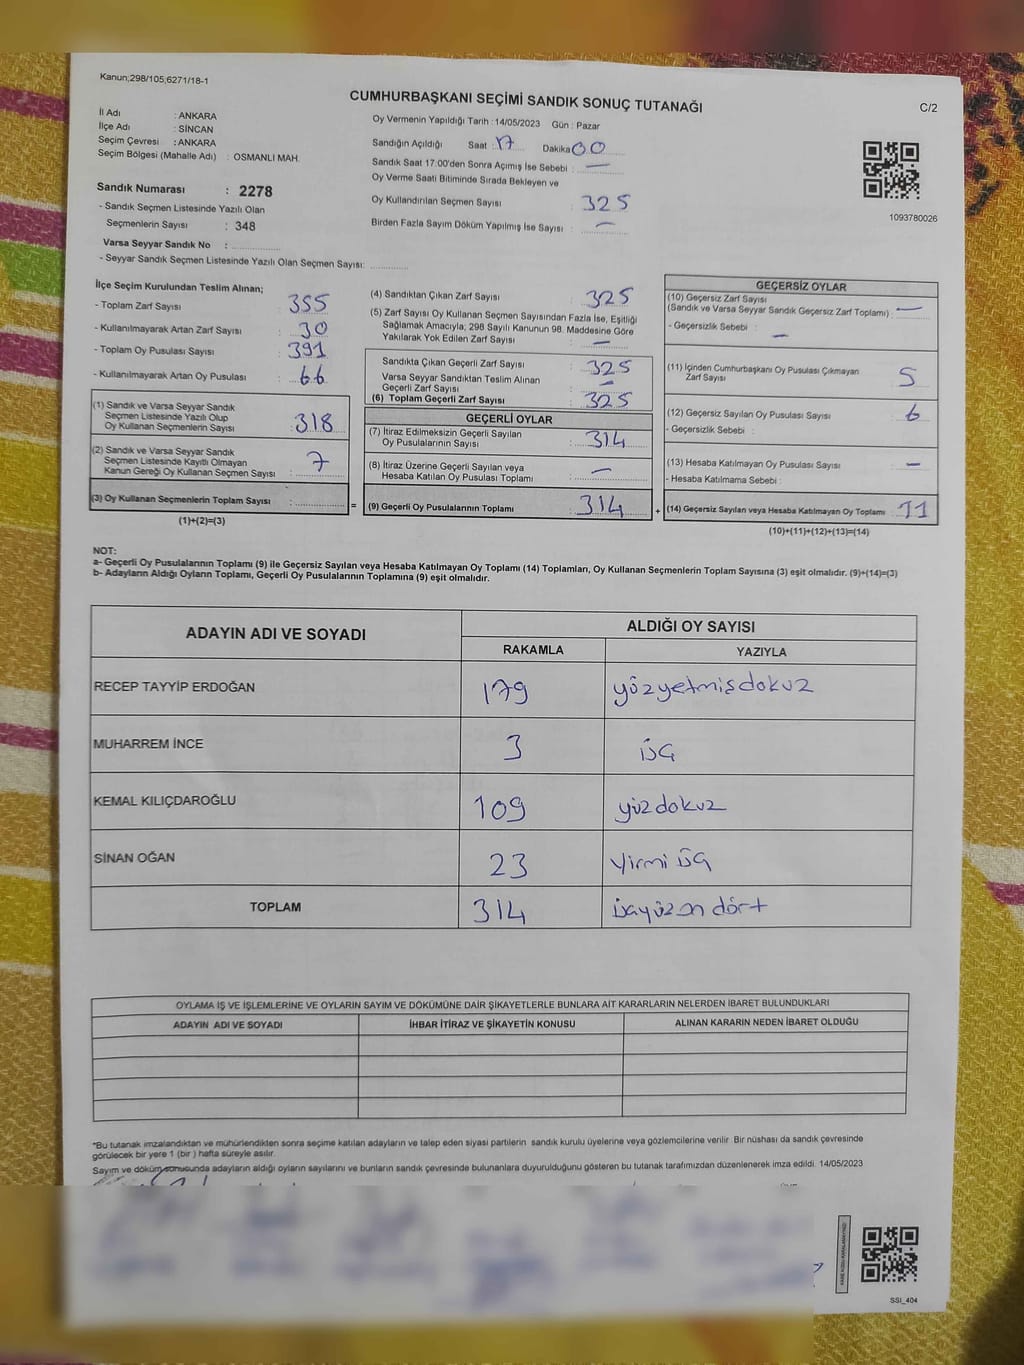 Kanun;298/105;6271/18-1
CUMHURBAŞKANI SEÇİMİ SANDIK SONUÇ TUTANAĞI
C/2
İl Adı : ANKARA
İlçe Adı : SİNCAN
Seçim Çevresi : ANKARA
Seçim Bölgesi (Mahalle Adı) : OSMANLI MAH.
Sandık Numarası : 2278
- Sandık Seçmen Listesinde Yazılı Olan
Seçmenlerin Sayısı : 348
Varsa Seyyar Sandık No :
- Seyyar Sandık Seçmen Listesinde Yazılı Olan Seçmen Sayısı:
Oy Vermenin Yapıldığı Tarih : 14/05/2023 Gün : Pazar
Sandığın Açıldığı Saat : 17 Dakika 00
Sandık Saat 17:00'den Sonra Açımış İse Sebebi : —
Oy Verme Saati Bitiminde Sırada Bekleyen ve
Oy Kullandırılan Seçmen Sayısı : 325
Birden Fazla Sayım Döküm Yapılmış İse Sayısı : —
1093780026
İlçe Seçim Kurulundan Teslim Alınan;
- Toplam Zarf Sayısı : 355
- Kullanılmayarak Artan Zarf Sayısı : 30
- Toplam Oy Pusulası Sayısı : 391
- Kullanılmayarak Artan Oy Pusulası : 66
(1) Sandık ve Varsa Seyyar Sandık
Seçmen Listesinde Yazılı Olup
Oy Kullanan Seçmenlerin Sayısı : 318
(2) Sandık ve Varsa Seyyar Sandık
Seçmen Listesinde Kayıtlı Olmayan
Kanun Gereği Oy Kullanan Seçmen Sayısı : 7
(3) Oy Kullanan Seçmenlerin Toplam Sayısı : =
(1)+(2)=(3)
(4) Sandıktan Çıkan Zarf Sayısı : 325
(5) Zarf Sayısı Oy Kullanan Seçmen Sayısından Fazla İse, Eşitliği
Sağlamak Amacıyla; 298 Sayılı Kanunun 98. Maddesine Göre
Yakılarak Yok Edilen Zarf Sayısı : —
Sandıkta Çıkan Geçerli Zarf Sayısı : 325
Varsa Seyyar Sandıktan Teslim Alınan
Geçerli Zarf Sayısı : —
(6) Toplam Geçerli Zarf Sayısı : 325
GEÇERLİ OYLAR
(7) İtiraz Edilmeksizin Geçerli Sayılan
Oy Pusulalarının Sayısı : 314
(8) İtiraz Üzerine Geçerli Sayılan veya
Hesaba Katılan Oy Pusulası Toplamı : —
(9) Geçerli Oy Pusulalarının Toplamı : 314 +
GEÇERSİZ OYLAR
(10) Geçersiz Zarf Sayısı
(Sandık ve Varsa Seyyar Sandık Geçersiz Zarf Toplamı) : —
- Geçersizlik Sebebi : —
(11) İçinden Cumhurbaşkanı Oy Pusulası Çıkmayan
Zarf Sayısı : 5
(12) Geçersiz Sayılan Oy Pusulası Sayısı : 6
- Geçersizlik Sebebi :
(13) Hesaba Katılmayan Oy Pusulası Sayısı : —
- Hesaba Katılmama Sebebi :
(14) Geçersiz Sayılan veya Hesaba Katılmayan Oy Toplamı : 11
(10)+(11)+(12)+(13)=(14)
NOT:
a- Geçerli Oy Pusulalarının Toplamı (9) ile Geçersiz Sayılan veya Hesaba Katılmayan Oy Toplamı (14) Toplamları, Oy Kullanan Seçmenlerin Toplam Sayısına (3) eşit olmalıdır. (9)+(14)=(3)
b- Adayların Aldığı Oyların Toplamı, Geçerli Oy Pusulalarının Toplamına (9) eşit olmalıdır.
ADAYIN ADI VE SOYADI
ALDIĞI OY SAYISI
RAKAMLA YAZIYLA
RECEP TAYYİP ERDOĞAN 179 yüzyetmişdokuz
MUHARREM İNCE 3 üç
KEMAL KILIÇDAROĞLU 109 yüzdokuz
SİNAN OĞAN 23 yirmi üç
TOPLAM 314 üçyüzon dört
OYLAMA İŞ VE İŞLEMLERİNE VE OYLARIN SAYIM VE DÖKÜMÜNE DAİR ŞİKAYETLERLE BUNLARA AİT KARARLARIN NELERDEN İBARET BULUNDUKLARI
ADAYIN ADI VE SOYADI İHBAR İTİRAZ VE ŞİKAYETİN KONUSU ALINAN KARARIN NEDEN İBARET OLDUĞU
*Bu tutanak imzalandıktan ve mühürlendikten sonra seçime katılan adayların ve talep eden siyasi partilerin sandık kurulu üyelerine veya gözlemcilerine verilir. Bir nüshası da sandık çevresinde
görülecek bir yere 1 (bir ) hafta süreyle asılır.
Sayım ve döküm sonucunda adayların aldığı oyların sayılarını ve bunların sandık çevresinde bulunanlara duyurulduğunu gösteren bu tutanak tarafımızdan düzenlenerek imza edildi. 14/05/2023
SSI_404